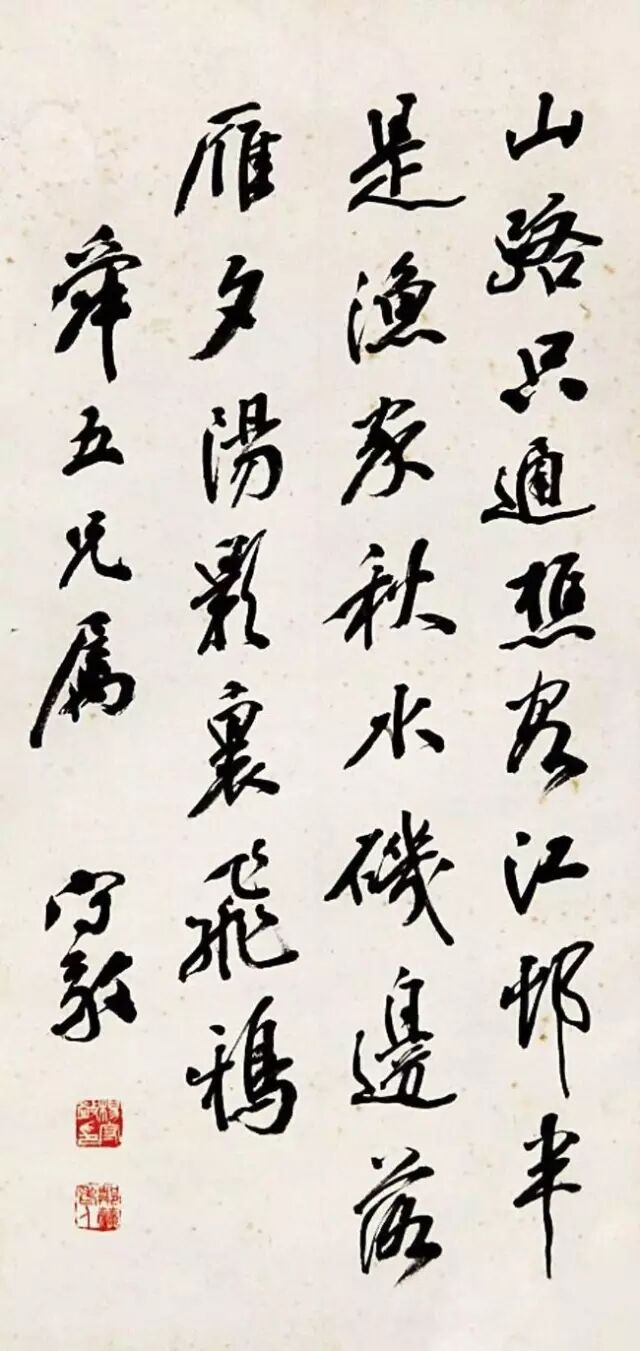 山路只通樵客江邨半
是漁家秋水磯邊落
雁夕陽影裏飛鴉
舜五兄屬 守敬